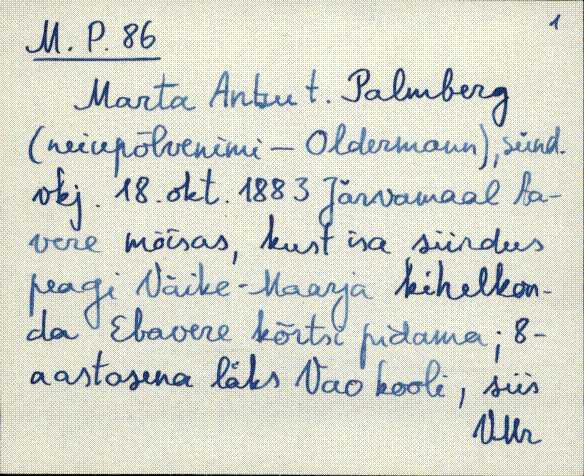 1
M. P. 86
Marta Antsu t. Palmberg
(neiupõlvenimi — Oldermann), sünd.
vkj. 18. okt. 1883 Järvamaal Aa-
vere mõisas, kust isa siirdus
peagi Väike-Maarja kihelkon-
da Ebavere kõrtsi pidama; 8-
aastasena läks Vao kooli, siis